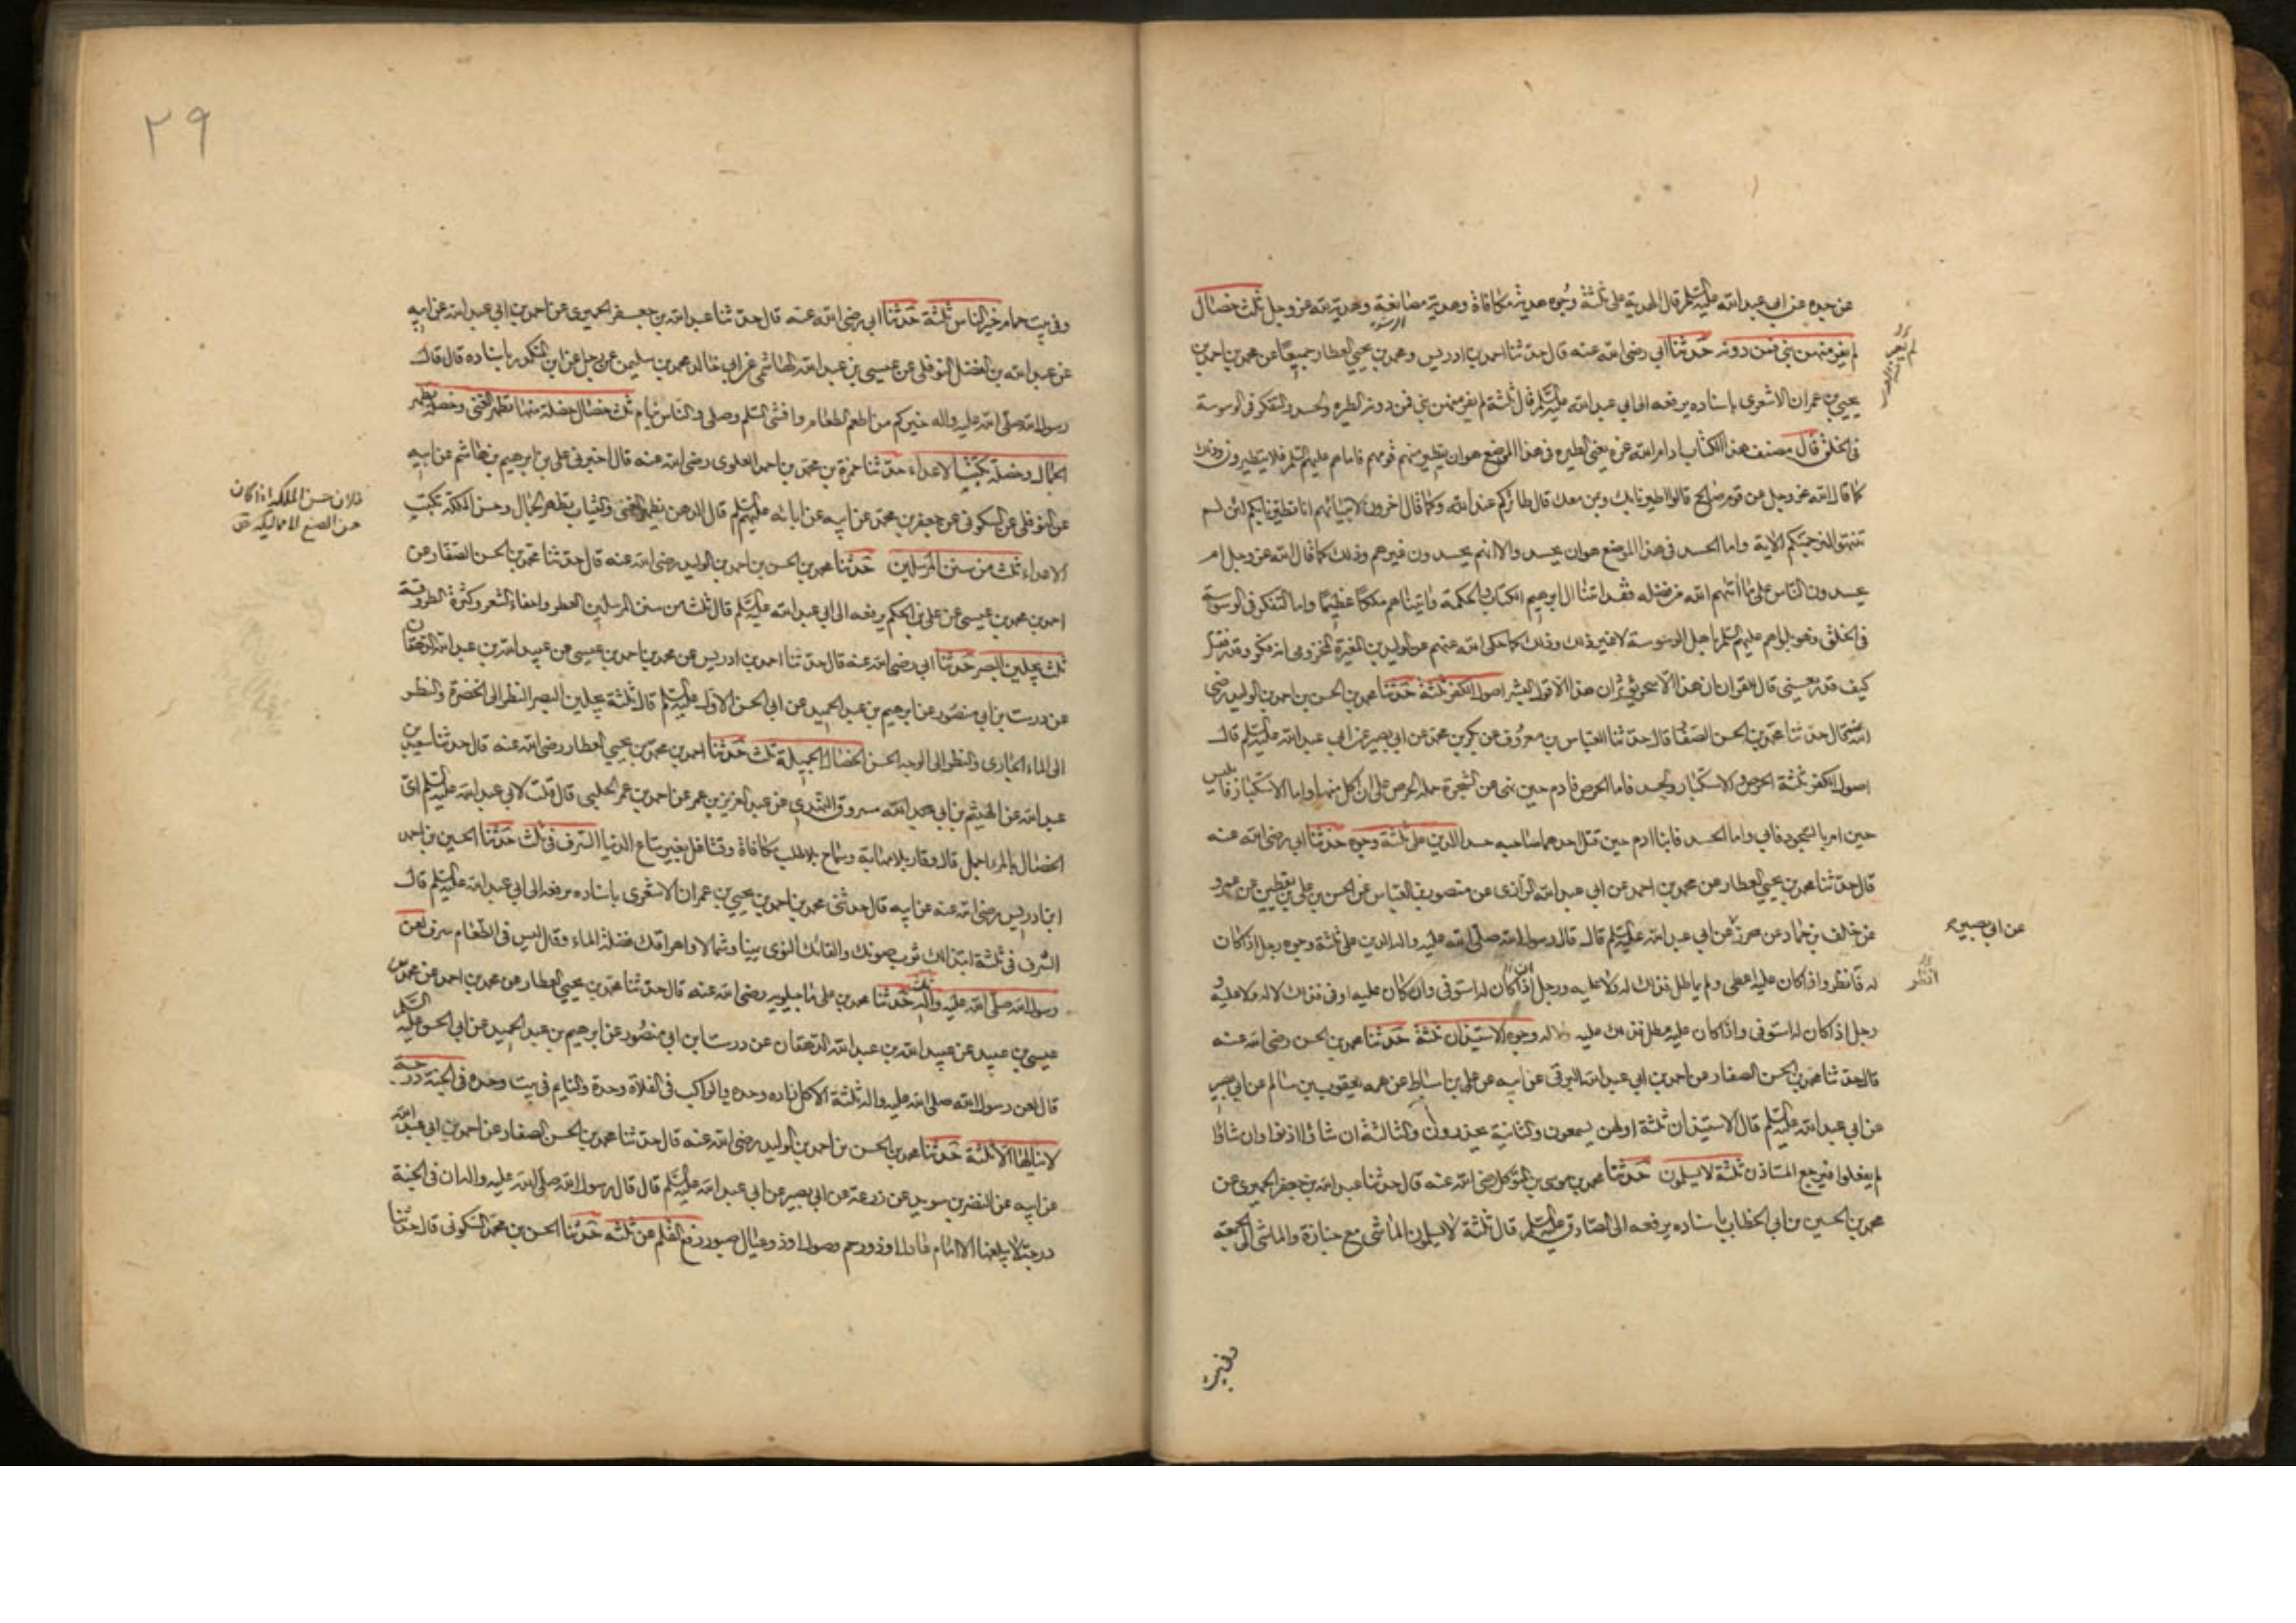 عن جده عن ابي عبد الله عليه السلم قال الهدية على ثلثة وجوه هدية مكافاة وهدية مصانعة وهدية لله عز وجل ثلث خصال
لم يعر منهن نبي فمن دونه حدثنا ابي رضي الله عنه قال حدثنا احمد بن ادريس ومحمد بن يحيى العطار جميعا عن محمد بن احمد بن
يحيى بن عمران الاشعري باسناده يرفعه الى ابي عبد الله عليه السلم قال ثلثة لم يعر منهن نبي فمن دونه الطيرة والحسد والتفكر في الوسوسة
في الخلق قال مصنف هذا الكتاب ادام الله عزه يعني الطيرة في هذا الموضع هو ان يتطير منهم قومهم فاما هم عليهم السلم فلا يتطيرون وذلك
كما قال الله عز وجل عن قوم صالح قالوا اطيرنا بك وبمن معك قال طائركم عند الله وكما قال اخرون لانبيائهم انا تطيرنا بكم لئن لم
تنتهوا لنرجمنكم الاية واما الحسد في هذا الموضع هو ان يحسدوا لا انهم يحسدون غيرهم وذلك كما قال الله عز وجل ام
يحسدون الناس على ما اتيهم الله من فضله فقد اتينا ال ابرهيم الكتاب والحكمة واتيناهم ملكا عظيما واما التفكر في الوسوسة
في الخلق فهو بلواهم عليهم السلم باهل الوسوسة لا غير ذلك وذلك كما حكى الله عنهم عن الوليد بن المغيرة المخزومي انه فكر وقدر فقتل
كيف قدر يعني قال للقران ان هذا الا سحر يؤثر ان هذا الا قول البشر اصول الكفر ثلثة حدثنا محمد بن الحسن بن احمد بن الوليد رضي
الله عنه قال حدثنا محمد بن الحسن الصفار قال حدثنا العباس بن معروف عن بكر بن محمد عن ابي بصير عن ابي عبد الله عليه السلم قال
اصول الكفر ثلثة الحرص والاستكبار والحسد فاما الحرص فادم حين نهى عن الشجرة حمله الحرص على ان اكل منها واما الاستكبار فابليس
حين امر بالسجود فابى واما الحسد فابنا ادم حين قتل احدهما صاحبه حسدا الدين على ثلثة وجوه حدثنا ابي رضي الله عنه
قال حدثنا محمد بن يحيى العطار عن محمد بن احمد عن ابي عبد الله الرازي عن منصور بن العباس عن الحسن بن علي بن يقطين عن عمرو
عن خلف بن حماد عن محرز عن ابي عبد الله عليه السلم قال قال رسول الله صلى الله عليه واله الدين على ثلثة وجوه رجل اذا كان
له فانظر واذا كان عليه اعطى ولم يماطل فذلك له ولا عليه ورجل اذا كان له استوفى وان كان عليه اوفى فذلك لا له ولا عليه و
رجل اذا كان له استوفى واذا كان عليه مطل فذلك عليه ولا له وجوه الاستيذان ثلثة حدثنا محمد بن الحسن رضي الله عنه
قال حدثنا محمد بن الحسن الصفار عن احمد بن ابي عبد الله البرقي عن ابيه عن علي بن اسباط عن عمه يعقوب بن سالم عن ابي بصير
عن ابي عبد الله عليه السلم قال الاستيذان ثلثة اولهن يسمعون والثانية يحذرون والثالثة ان شاؤا اذنوا وان شاؤا
لم يفعلوا فيرجع المستاذن ثلثة لا يسلمون حدثنا محمد بن موسى بن المتوكل رضي الله عنه قال حدثنا عبد الله بن جعفر الحميري عن
محمد بن الحسين بن ابي الخطاب باسناده يرفعه الى الصادق عليه السلم قال ثلثة لا يسلمون الماشي مع جنازة والماشي الى الجمعة
عن ابي بصير
انظر
وفي بيت
٢٩
وفي بيت حمام خير الناس ثلثة حدثنا ابي رضي الله عنه قال حدثنا عبد الله بن جعفر الحميري عن احمد بن ابي عبد الله عن ابيه
عن عبد الله بن الفضل النوفلي عن عيسى بن عبد الله الهاشمي عن ابي خالد محمد بن سليمن عن رجل عن ابن المنكدر باسناده قال قال
رسول الله صلى الله عليه واله خيركم من اطعم الطعام وافشى السلم وصلى والناس نيام ثلث خصال خصلة منها تظهر الغنى وخصلة تظهر
الجمال وخصلة تكبت الاعداء حدثنا حمزة بن محمد بن احمد العلوي رضي الله عنه قال اخبرني علي بن ابرهيم بن هاشم عن ابيه
عن النوفلي عن السكوني عن جعفر بن محمد عن ابيه عن ابائه عليهم السلم قال الدهن يظهر الغنى والثياب تظهر الجمال وحسن الملكة تكبت
الاعداء ثلث من سنن المرسلين حدثنا محمد بن الحسن بن احمد بن الوليد رضي الله عنه قال حدثنا محمد بن الحسن الصفار عن
احمد بن محمد بن عيسى عن علي بن الحكم يرفعه الى ابي عبد الله عليه السلم قال ثلث من سنن المرسلين العطر واحفاء الشعر وكثرة الطروقة
ثلث يجلين البصر حدثنا ابي رضي الله عنه قال حدثنا احمد بن ادريس عن محمد بن احمد بن عيسى عن عبيد الله بن عبد الله الدهقان
عن درست بن ابي منصور عن ابرهيم بن عبد الحميد عن ابي الحسن الاول عليه السلم قال ثلثة يجلين البصر النظر الى الخضرة والنظر
الى الماء الجاري والنظر الى الوجه الحسن الخصال الجميلة ثلث حدثنا احمد بن محمد بن يحيى العطار رضي الله عنه قال حدثنا سعد بن
عبد الله عن الهيثم بن ابي عبد الله مسروق النهدي عن عبد العزيز بن عمر عن احمد بن عمر الحلبي قال قلت لابي عبد الله عليه السلم اي
الخصال بالمرء اجمل قال وقار بلا مهابة وسماح بلا طلب مكافاة وتشاغل بغير متاع الدنيا السرف في ثلث حدثنا الحسين بن احمد
ابن ادريس رضي الله عنه عن ابيه قال حدثني محمد بن احمد بن يحيى بن عمران الاشعري باسناده يرفعه الى ابي عبد الله عليه السلم قال
السرف في ثلثة ابتذالك ثوب صونك والقائك النوى يمينا وشمالا واهراقك فضلة الماء وقال ليس في الطعام سرف لعن
رسول الله صلى الله عليه واله ثلثة حدثنا محمد بن علي ماجيلويه رضي الله عنه قال حدثنا محمد بن يحيى العطار عن محمد بن احمد عن محمد بن
عيسى بن عبيد عن عبيد الله بن عبد الله الدهقان عن درست ابن ابي منصور عن ابرهيم بن عبد الحميد عن ابي الحسن عليه السلم
قال لعن رسول الله صلى الله عليه واله ثلثة الاكل زاده وحده والراكب في الفلاة وحده والنايم في بيت وحده في الجنة درجة
لا ينالها الا ثلثة حدثنا محمد بن الحسن بن احمد بن الوليد رضي الله عنه قال حدثنا محمد بن الحسن الصفار عن احمد بن ابي عبد الله
عن ابيه عن النضر بن سويد عن زرعة عن ابي بصير عن ابي عبد الله عليه السلم قال قال رسول الله صلى الله عليه واله ان في الجنة
درجة لا يبلغها الا امام عادل او ذو رحم وصول او ذو عيال صبور رفع القلم عن ثلثه حدثنا الحسن بن محمد السكوني قال حدثنا
فلان حسن الملكة اذا كان
حسن الصنع الا مماليكه ص